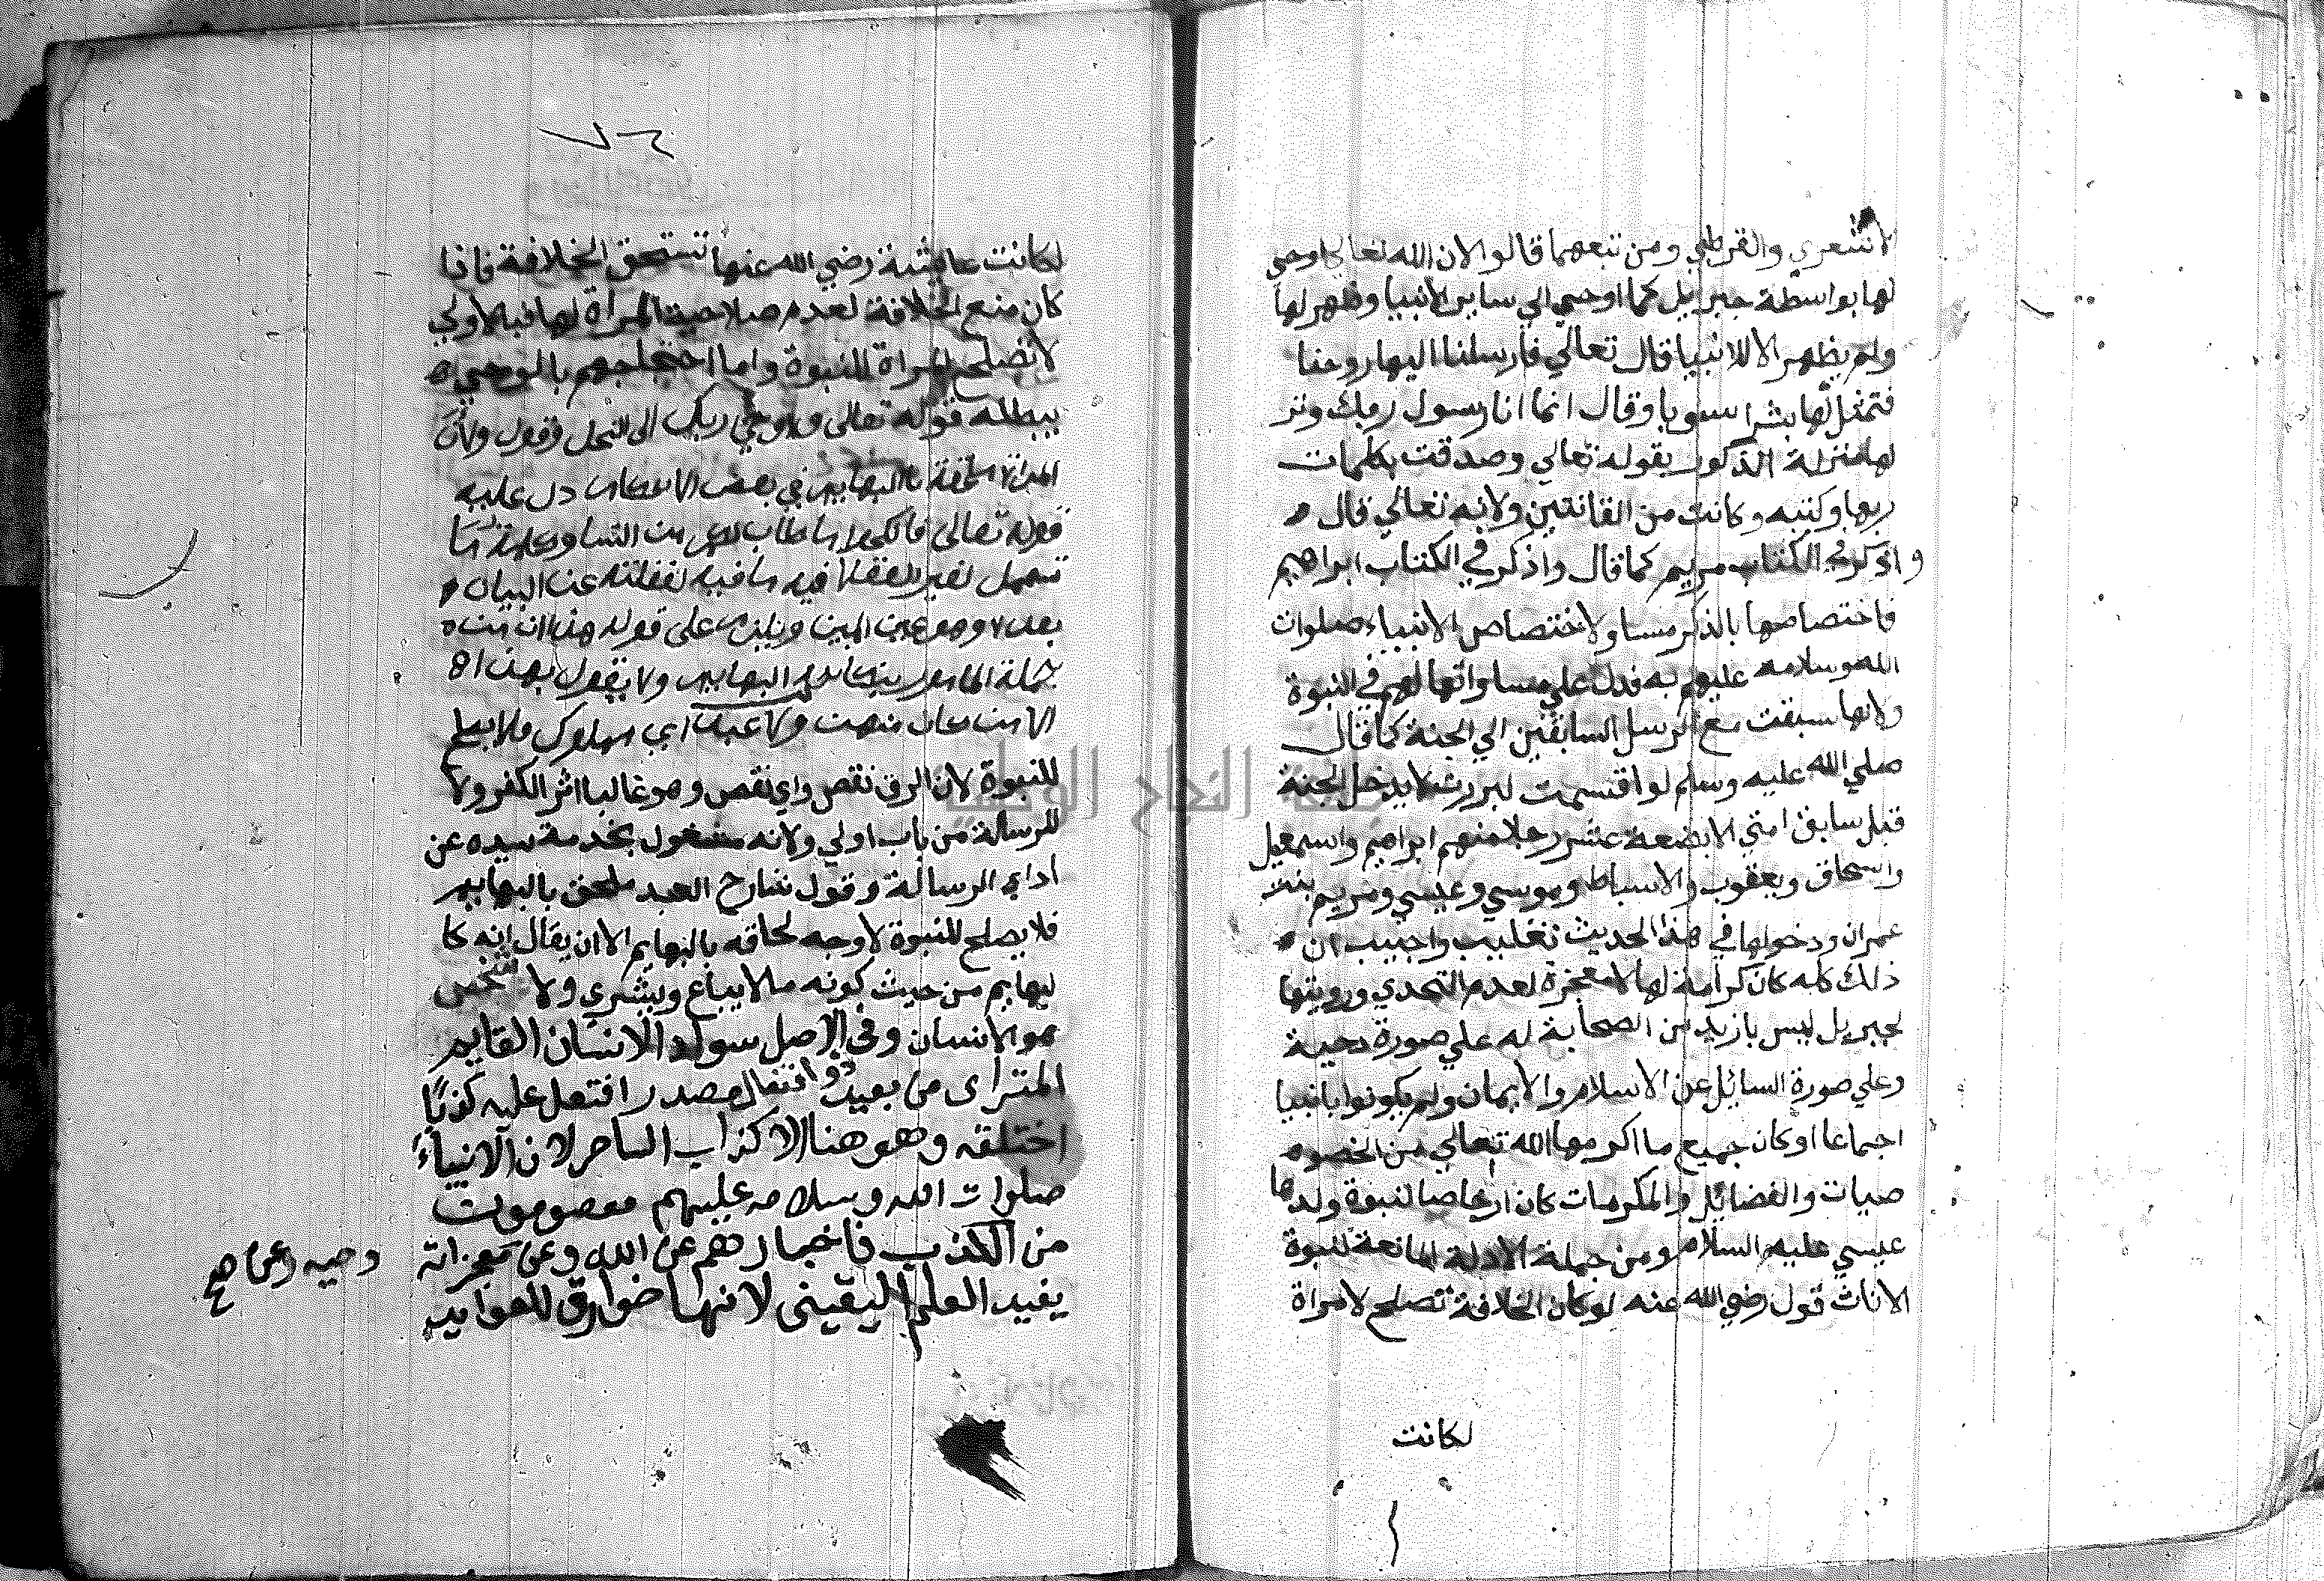 لاشعري والقرطبي ومن تبعهما قالوا لان الله تعالي اوحي
لها بواسطة جبريل كما اوحي الي ساير الانبيا وظهر لها
ولم يظهر الا للانبيا قال تعالي فارسلنا اليها روحنا
فتمثل لها بشرا سويا وقال انما انا رسول ربك ونز
لها منزلة الذكور بقوله تعالي وصدقت بكلمات
ربها وكتبه وكانت من القانتين ولانه تعالي قال
واذكر في الكتاب مريم كما قال واذكر في الكتاب ابراهيم
فاختصاصها بالذكر مساو لاختصاص الانبياء صلوات
الله وسلامه عليهم به فدل علي مساواتها لهم في النبوة
ولانها سبقت مع الرسل السابقين الي الجنة كما قال
صلي الله عليه وسلم لو اقسمت لبررت لا يدخل الجنة
قبل سابق امتي الا بضعة عشر رجلا منهم ابراهيم واسمعيل
واسحاق ويعقوب والاسباط وموسي وعيسي ومريم بنت
عمران ودخولها في هذا الحديث تغليب واجيب ان
ذلك كله كان كرامة لها لا معجزة لعدم التحدي ورويتها
لجبريل ليس بازيد من الصحابة له علي صورة دحية
وعلي صورة السائل عن الاسلام والايمان ولم يكونوا بانبيا
اجماعا او كان جميع ما اكرمها الله تعالي من الخصو
صيات والفضائل والمكرمات كان ارهاصا لنبوة ولدها
عيسي عليه السلام ومن جملة الادلة المانعة لنبوة
الاناث قول رضي الله عنه لو كان الخلافة تصلح لامراة
لكانت
٧٦
لكانت عايشة رضي الله عنها تستحق الخلافة فاذا
كان منع الخلافة لعدم صلاحية المراة لها فبالاولي
لا تصلح المراة للنبوة واما احتجاجهم بالوحي
يبطله قوله تعالى واوحي ربك الى النحل وقول ولان
المراة ملحقة بالبهايم في بعض الاحكام دل عليه
قوله تعالى فانكحوا ما طاب لكم من النسا
تعمل لغير العقلا فيه ما فيه لغفلته عن البيان
بعده وهو عين المبين ويلزم على قوله هذا ان
جملة البهايم ولا يقول بهذا
ولا عبد اي مملوك فلا يصلح
للنبوة لان الرق نقص واي نقص وهو غالبا اثر الكفر ولا
للرسالة من باب اولي ولانه مشغول بخدمة سيده عن
اداي الرسالة وقول شارح العبد ملحق بالبهايم
فلا يصلح للنبوة لا وجه لحاقه بالبهايم الا ان يقال انه كا
لبهايم من حيث كونه مالا يباع ويشري ولا شخص
هو الانسان وفي الاصل سواد الانسان القايم
المتراى من بعيد ذو افتعال مصدر افتعل عليه كذبًا
اختلقه وهو هنا الكذاب الساحر لان الانبياء
صلوات الله وسلامه عليهم معصومون
من الكذب فاخبارهم عن الله وعن معجزاته
وحيه وعن صح
يفيد العلم اليقيني لانها خوارق للعوايد
جامعة النجاح الوطنية